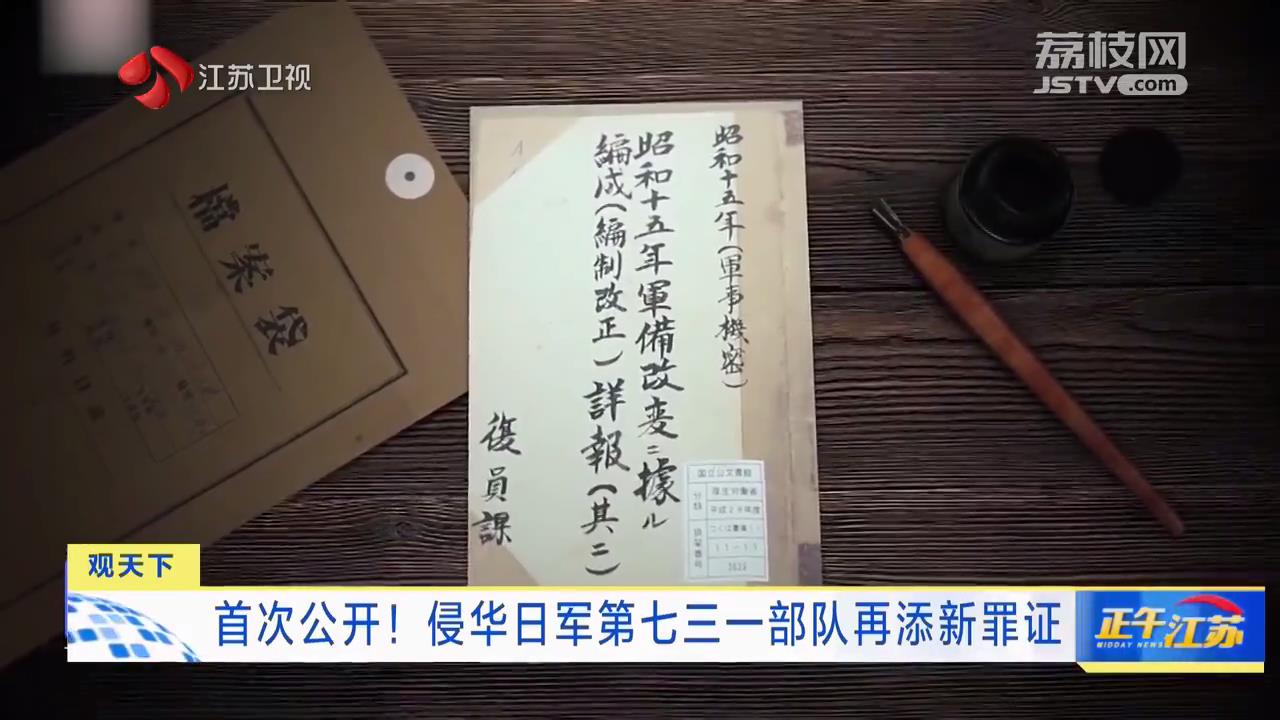 江苏卫视
荔枝网
JSTV.com
檔案袋
昭和十五年(軍事機密)
昭和十五年軍備改変ニ據ル
編成(編制改正)詳報(其二)
復員課
国立公文書館
分類
厚生労働省
平成29年度
排架番号
11-15
观天下
首次公开!侵华日军第七三一部队再添新罪证
正午江苏
MIDDAY NEWS